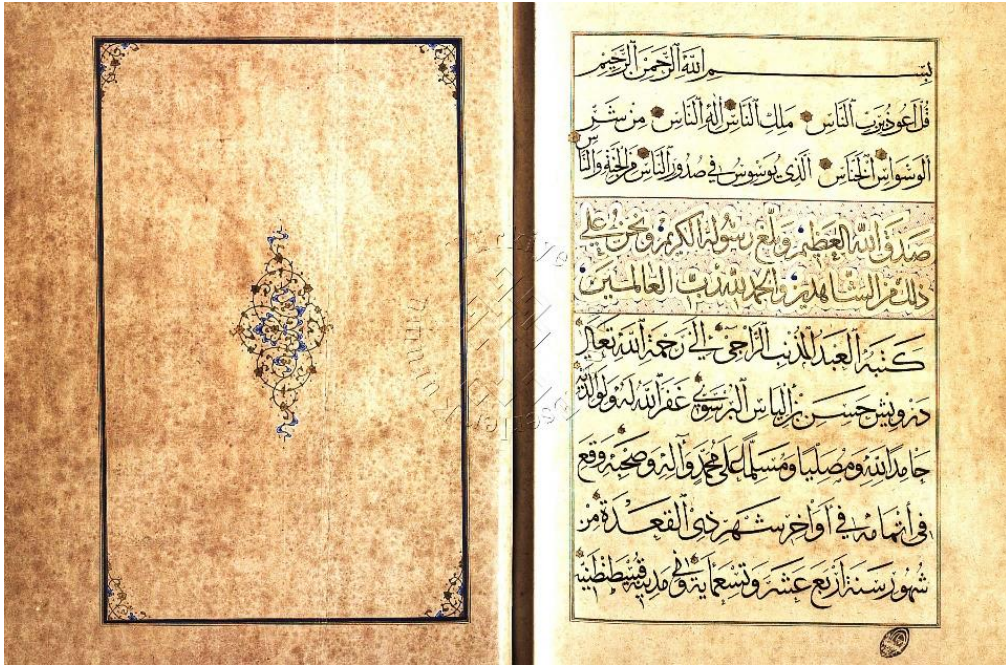 بِسْمِ ٱللَّهِ ٱلرَّحْمَنِ ٱلرَّحِيمِ
قُلْ أَعُوذُ بِرَبِّ ٱلنَّاسِ مَلِكِ ٱلنَّاسِ إِلَهِ ٱلنَّاسِ مِنْ شَرِّ
ٱلْوَسْوَاسِ ٱلْخَنَّاسِ ٱلَّذِي يُوَسْوِسُ فِي صُدُورِ ٱلنَّاسِ مِنَ ٱلْجِنَّةِ وَٱلنَّاسِ
صدق الله العظيم وبلغ رسوله الكريم ونحن على
ذلك من الشاهدين والحمد لله رب العالمين
كتبه العبد المذنب الراجي إلى رحمة الله تعالى
درويش حسن بن الياس البرسوي غفر الله له ولوالديه
حامدا لله ومصليا ومسلما على محمد وآله وصحبه وقع
في أتمامه في أواخر شهر ذي القعدة من
شهور سنة أربع عشر وتسعماية وفي مدينة قسطنطنية